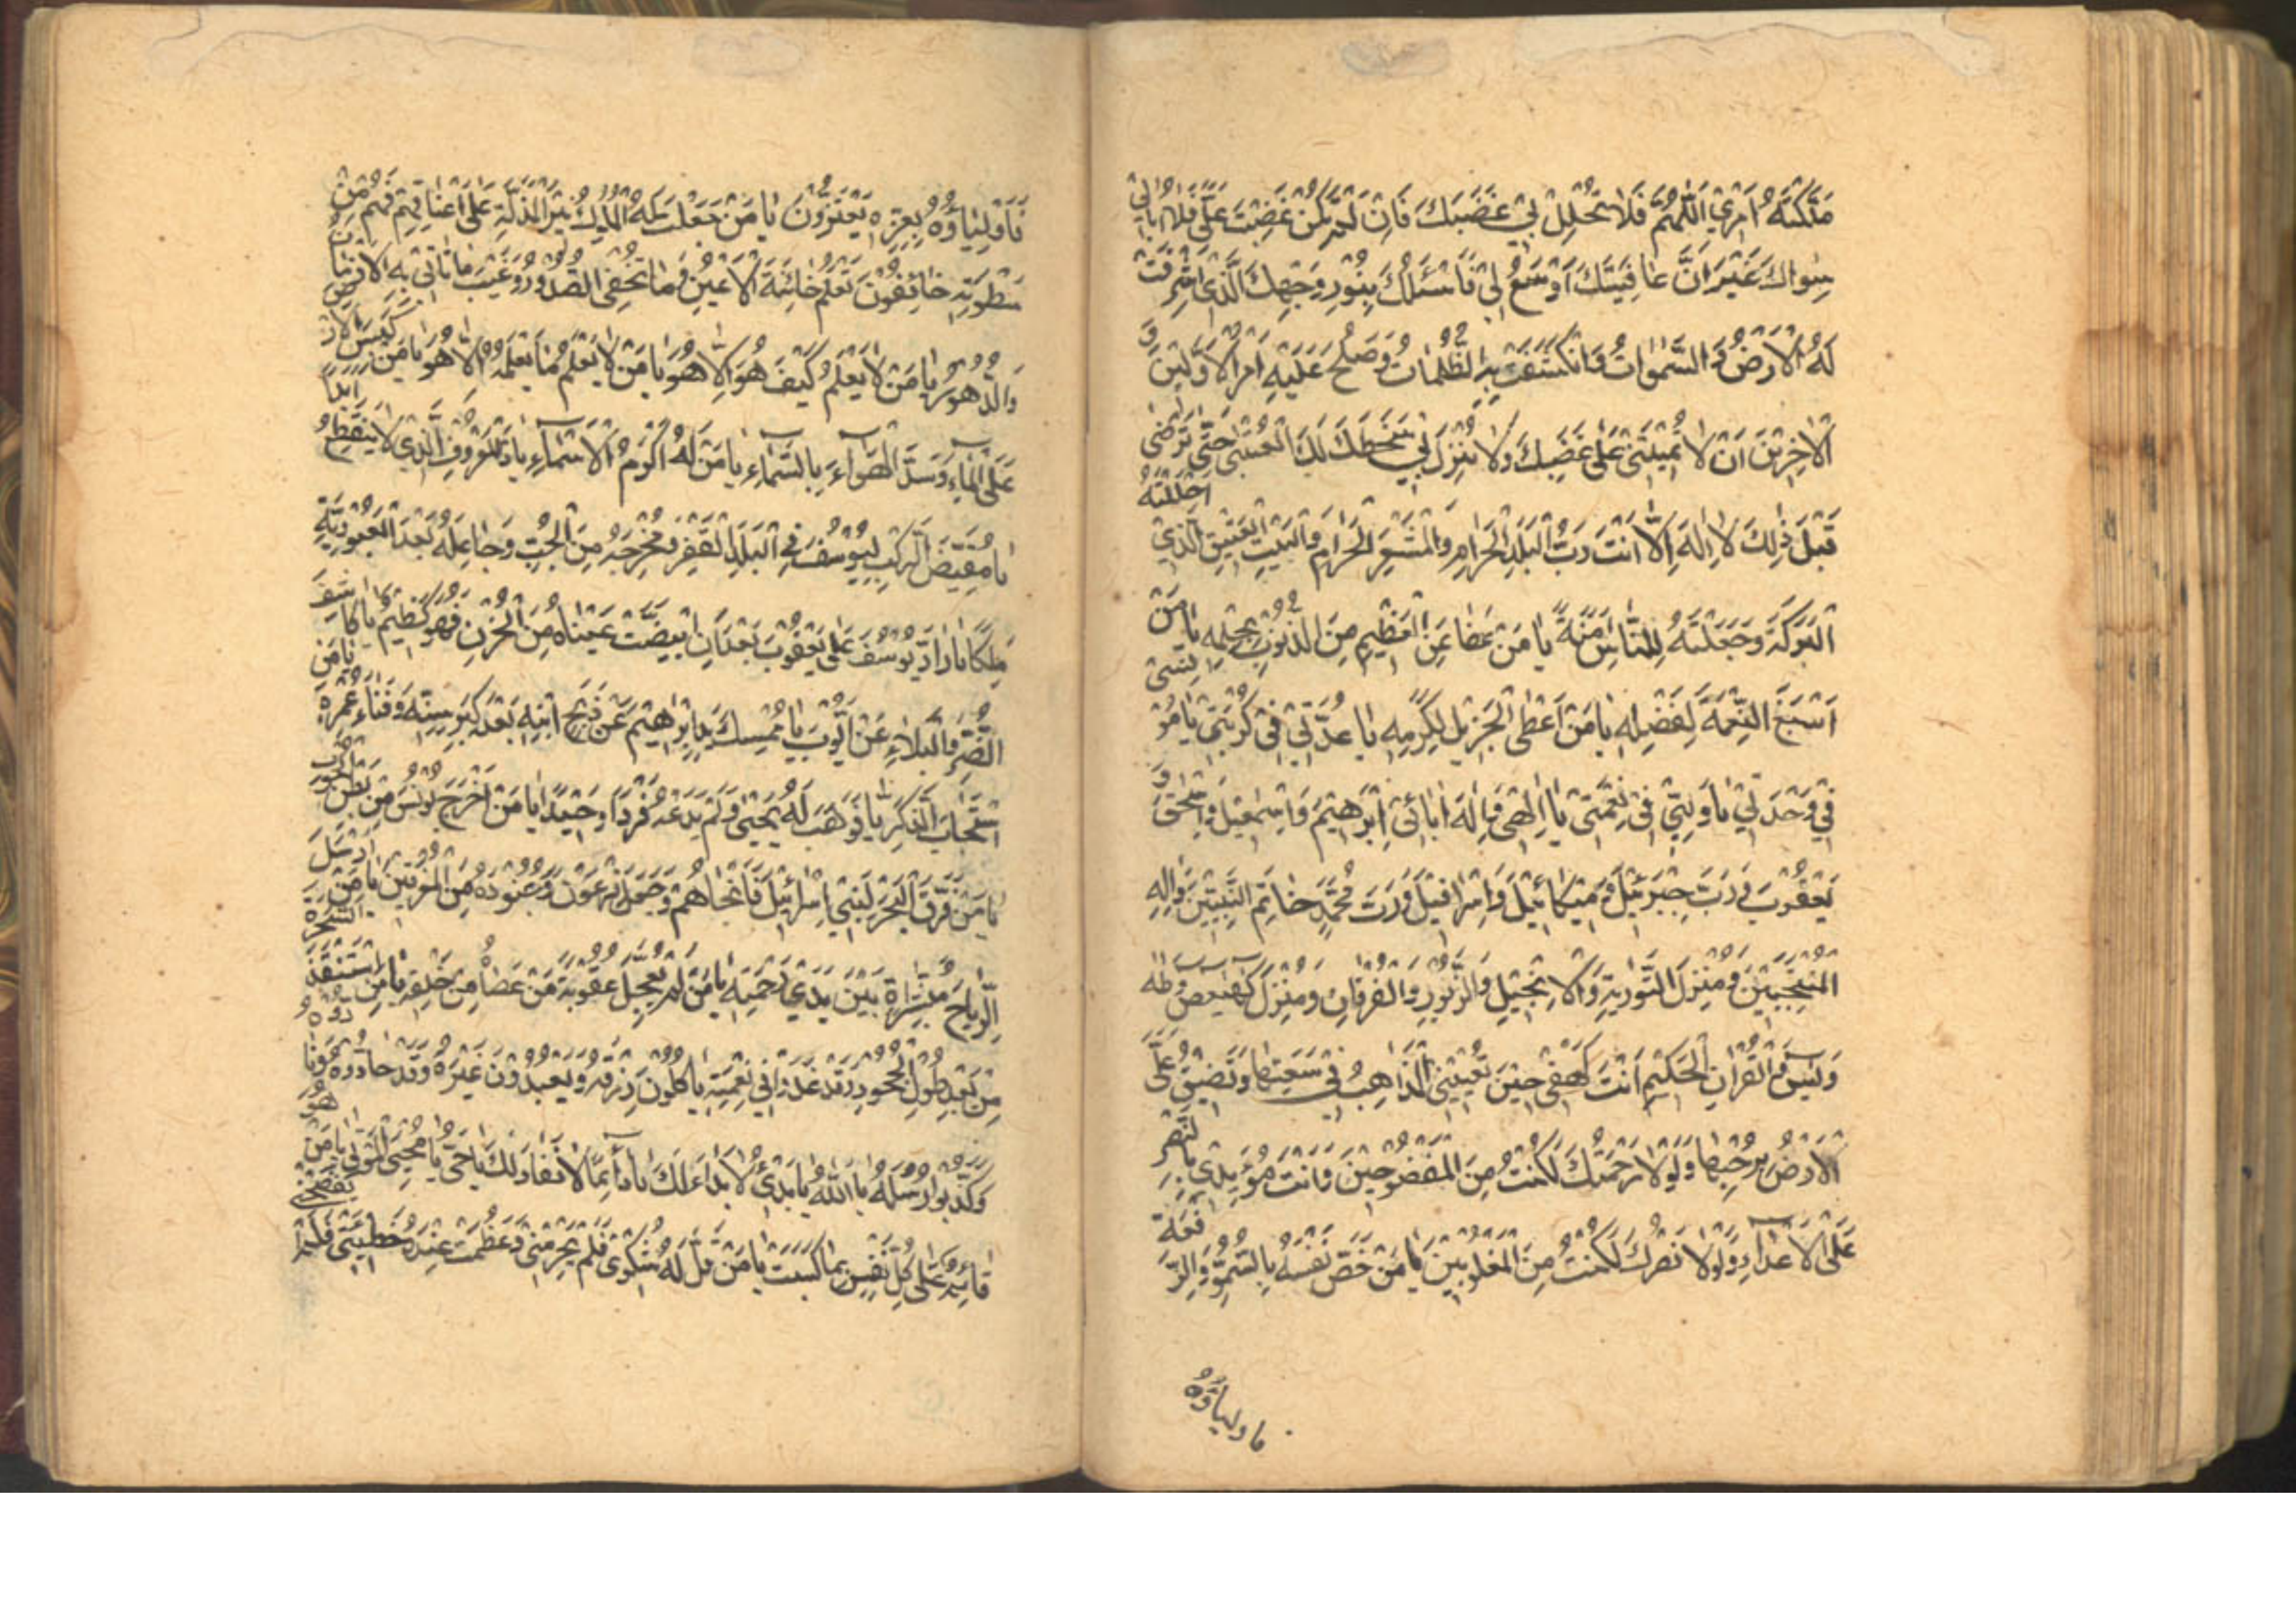 مَلَّكْتَهُ اَمْرِي اَللّٰهُمَّ فَلَا تُحْلِلْ بِي غَضَبَكَ فَاِنْ لَمْ تَكُنْ غَضِبْتَ عَلَيَّ فَلَا اُبَالِي
سِوَاكَ غَيْرَ اَنَّ عَافِيَتَكَ اَوْسَعُ لِي فَاَسْئَلُكَ بِنُورِ وَجْهِكَ الَّذِي اَشْرَقَتْ
لَهُ الْاَرْضُ وَ السَّمٰوَاتُ وَ انْكَشَفَتْ بِهِ الظُّلُمَاتُ وَ صَلُحَ عَلَيْهِ اَمْرُ الْاَوَّلِينَ وَ
الْاٰخِرِينَ اَنْ لَا تُمِيتَنِي عَلٰى غَضَبِكَ وَلَا تُنْزِلَ بِي سَخَطَكَ لَكَ الْعُتْبٰى حَتّٰى تَرْضٰى
قَبْلَ ذٰلِكَ لَا اِلٰهَ اِلَّا اَنْتَ رَبَّ الْبَلَدِ الْحَرَامِ وَ الْمَشْعَرِ الْحَرَامِ وَ الْبَيْتِ الْعَتِيقِ الَّذِي اَحْلَلْتَهُ
الْبَرَكَةَ وَ جَعَلْتَهُ لِلنَّاسِ اَمَنَةً يَا مَنْ عَفَا عَنِ الْعَظِيمِ مِنَ الذُّنُوبِ بِحِلْمِهِ يَا مَنْ
اَسْبَغَ النِّعْمَةَ بِفَضْلِهِ يَا مَنْ اَعْطَى الْجَزِيلَ بِكَرَمِهِ يَا عُدَّتِي فِي كُرْبَتِي يَا مُونِسِي
فِي وَحْدَتِي يَا وَلِيِّي فِي نِعْمَتِي يَا اِلٰهِي وَ اِلٰهَ اٰبَائِي اِبْرٰهِيمَ وَ اِسْمٰعِيلَ وَ اِسْحٰقَ وَ
يَعْقُوبَ وَ رَبَّ جِبْرَئِيلَ وَ مِيكَائِيلَ وَ اِسْرَافِيلَ وَ رَبَّ مُحَمَّدٍ خَاتَمِ النَّبِيِّينَ وَ اٰلِهِ
الْمُنْتَجَبِينَ وَ مُنْزِلَ التَّوْرٰيةِ وَ الْاِنْجِيلِ وَ الزَّبُورِ وَ الْفُرْقَانِ وَ مُنْزِلَ كٓهٰيٰعٓصٓ وَ طٰهٰ
وَ يٰسٓ وَ الْقُرْاٰنِ الْحَكِيمِ اَنْتَ كَهْفِي حِينَ تُعْيِينِي الْمَذَاهِبُ فِي سَعَتِهَا وَ تَضِيقُ عَلَيَّ
الْاَرْضُ بِرُحْبِهَا وَ لَوْلَا رَحْمَتُكَ لَكُنْتُ مِنَ الْمَفْضُوحِينَ وَ اَنْتَ مُؤَيِّدِي بِالنَّصْرِ
عَلَى الْاَعْدَاءِ وَ لَوْلَا نَصْرُكَ لَكُنْتُ مِنَ الْمَغْلُوبِينَ يَا مَنْ خَصَّ نَفْسَهُ بِالسُّمُوِّ وَ الرِّفْعَةِ
فاولياؤه
فَاَوْلِيَاؤُهُ بِعِزِّهِ يَعْتَزُّونَ يَا مَنْ جَعَلَتْ لَهُ الْمُلُوكُ نِيرَ الْمَذَلَّةِ عَلٰى اَعْنَاقِهِمْ فَهُمْ مِنْ
سَطَوَتِهِ خَائِفُونَ تَعْلَمُ خَائِنَةَ الْاَعْيُنِ وَ مَا تُخْفِي الصُّدُورُ وَ غَيْبَ مَا تَاْتِي بِهِ الْاَزْمَانُ
وَ الدُّهُورُ يَا مَنْ لَا يَعْلَمُ كَيْفَ هُوَ اِلَّا هُوَ يَا مَنْ لَا يَعْلَمُ مَا يَعْلَمُهُ اِلَّا هُوَ يَا مَنْ كَبَسَ الْاَرْضَ
عَلَى الْمَاءِ وَ سَدَّ الْهَوَاءَ بِالسَّمَاءِ يَا مَنْ لَهُ اَكْرَمُ الْاَسْمَاءِ يَا ذَا الْمَعْرُوفِ الَّذِي لَا يَنْقَطِعُ اَبَدًا
يَا مُقَيِّضَ الرَّكْبِ لِيُوسُفَ فِي الْبَلَدِ الْقَفْرِ وَ مُخْرِجَهُ مِنَ الْجُبِّ وَ جَاعِلَهُ بَعْدَ الْعُبُودِيَّةِ
مَلِكًا يَا رَادَّ يُوسُفَ عَلٰى يَعْقُوبَ بَعْدَ اَنِ ابْيَضَّتْ عَيْنَاهُ مِنَ الْحُزْنِ فَهُوَ كَظِيمٌ يَا كَاشِفَ
الضُّرِّ وَ الْبَلَاءِ عَنْ اَيُّوبَ يَا مُمْسِكَ يَدِ اِبْرٰهِيمَ عَنْ ذَبْحِ ابْنِهِ بَعْدَ كِبَرِ سِنِّهِ وَ فَنَاءِ عُمُرِهِ يَا مَنِ
اسْتَجَابَ لِزَكَرِيَّا فَوَهَبَ لَهُ يَحْيٰى وَ لَمْ يَدَعْهُ فَرْدًا وَحِيدًا يَا مَنْ اَخْرَجَ يُونُسَ مِنْ بَطْنِ الْحُوتِ
يَا مَنْ فَرَقَ الْبَحْرَ لِبَنِي اِسْرَائِيلَ فَاَنْجَاهُمْ وَ جَعَلَ فِرْعَوْنَ وَ جُنُودَهُ مِنَ الْمُغْرَقِينَ يَا مَنْ اَرْسَلَ
الرِّيَاحَ مُبَشِّرَاةً بَيْنَ يَدَيْ رَحْمَتِهِ يَا مَنْ لَمْ يُعَجِّلْ عُقُوبَةَ مَنْ عَصَاهُ مِنْ خَلْقِهِ يَا مَنِ اسْتَنْقَذَ السَّحَرَةَ
مِنْ بَعْدِ طُولِ الْجُحُودِ وَ قَدْ غَدَوْا فِي نِعْمَتِهِ يَاْكُلُونَ رِزْقَهُ وَ يَعْبُدُونَ غَيْرَهُ وَ قَدْ حَادُّوهُ وَ نَادُّوهُ
وَ كَذَّبُوا رُسُلَهُ يَا اَللّٰهُ يَا بَدِيءُ لَا بَدَاءَ لَكَ يَا دَائِمًا لَا نَفَادَ لَكَ يَا حَيُّ يَا مُحْيِيَ الْمَوْتٰى يَا مَنْ هُوَ
قَائِمٌ عَلٰى كُلِّ نَفْسٍ بِمَا كَسَبَتْ يَا مَنْ قَلَّ لَهُ شُكْرِي فَلَمْ يَحْرِمْنِي وَ عَظُمَتْ عِنْدَهُ خَطِيئَتِي فَلَمْ يَفْضَحْنِي